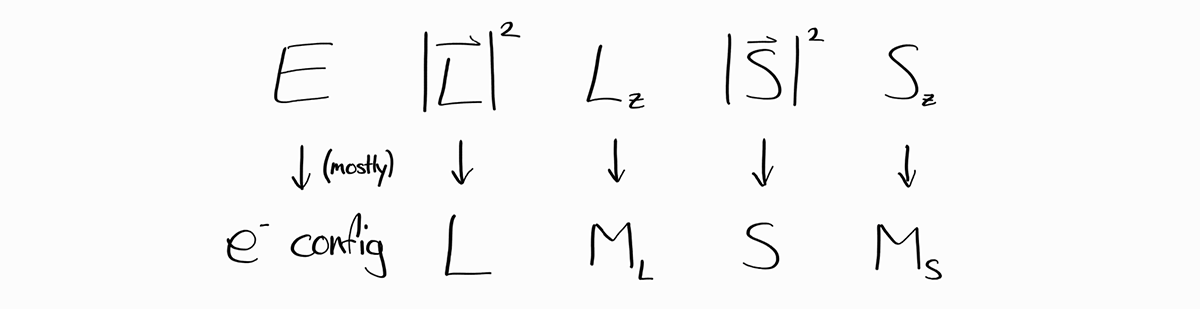 E |L⃗|² L_z |S⃗|² S_z
↓ (mostly) ↓ ↓ ↓ ↓
e⁻ config L M_L S M_S